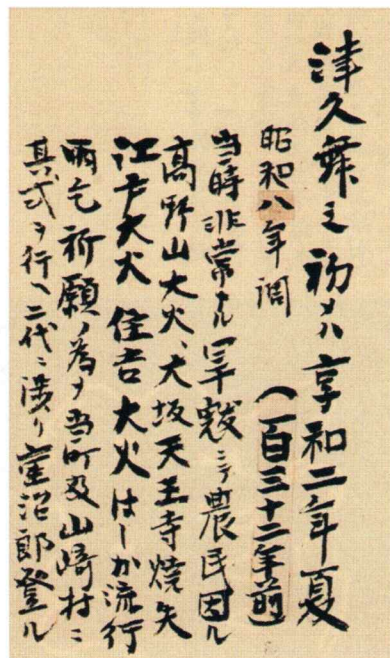 津久舞之初メハ享和二年夏
昭和八年調 (一百三十二年前)
当時非常ナル旱魃ニテ農民困ル
高野山大火、大坂天王寺焼失
江戸大火 住吉大火 はしか流行
雨乞祈願ノ為メ当町及山崎村ニ
其式ヲ行ヘ二代ニ渉リ重治郎登ル